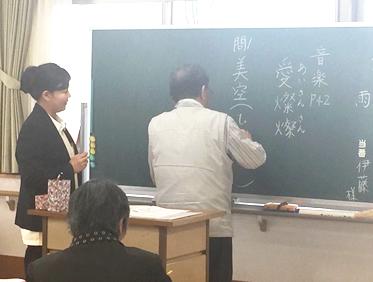 雨
当番 伊藤様
音楽 P42
愛燦燦
あいさんさん
問 美空(